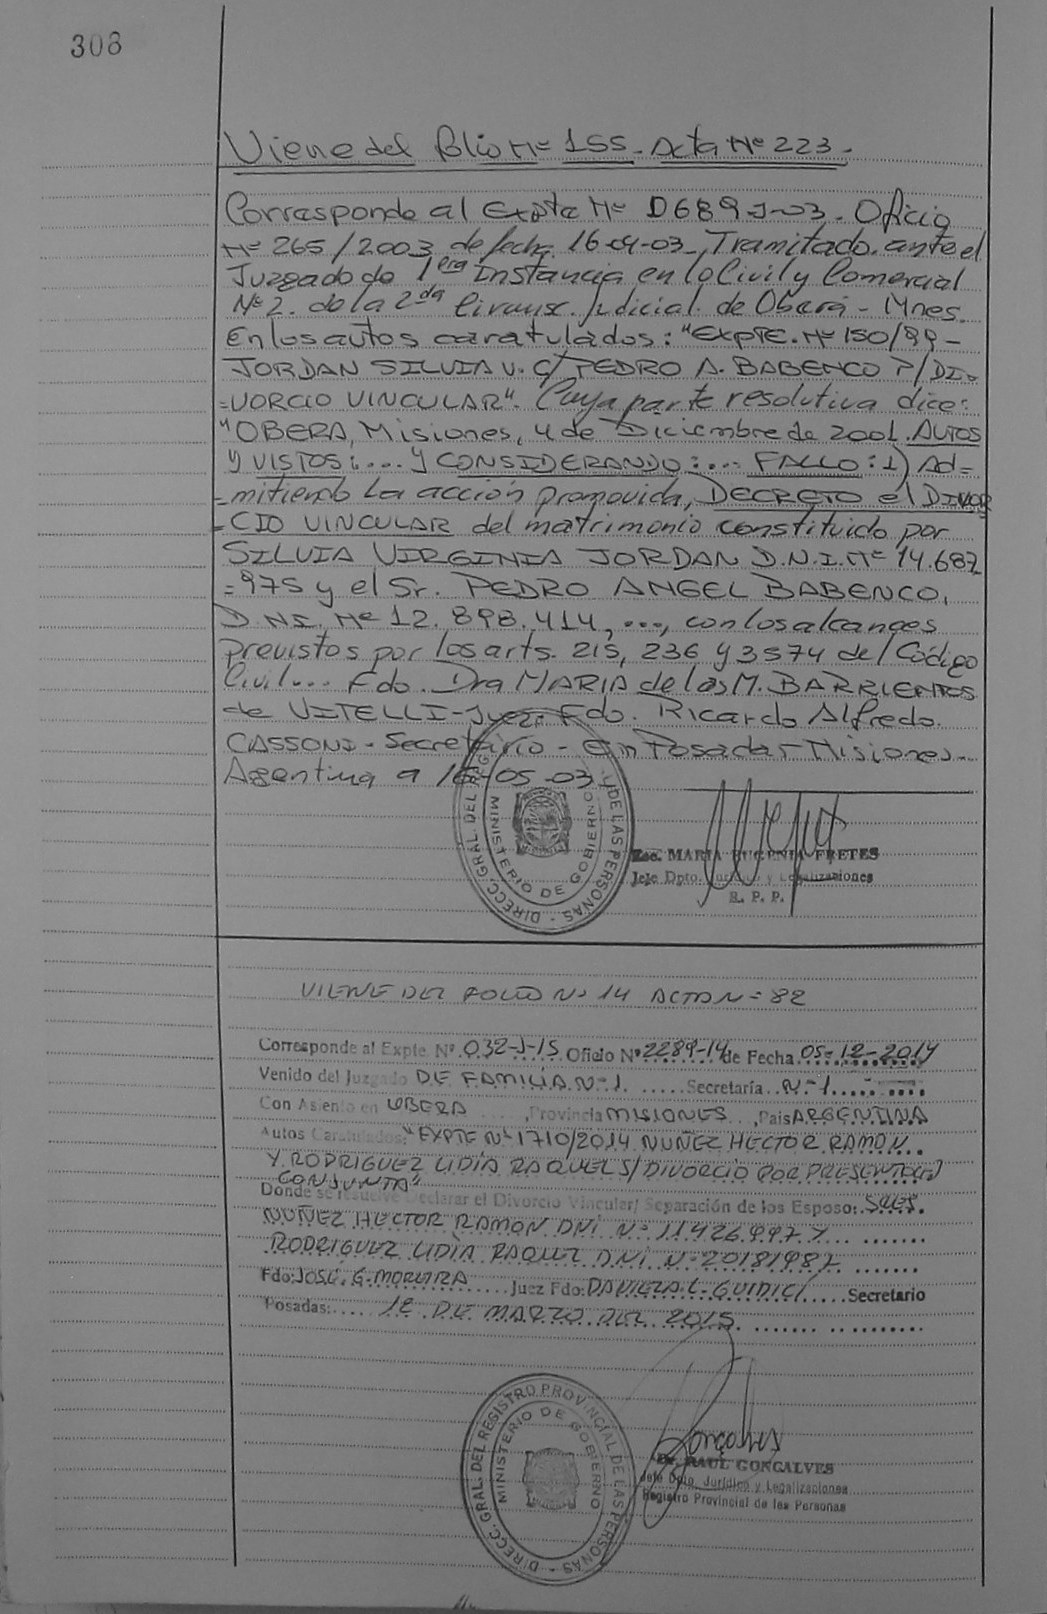 308
Viene del folio Nº 155. Acta Nº 223.
Corresponde al Expte Nº D689-J-03. Oficio
Nº 265/2003 de fecha 16-04-03. Tramitado ante el
Juzgado de 1era Instancia en lo Civil y Comercial
Nº 2. de la 2da Circunsc. Judicial de Oberá - Mnes.
En los autos caratulados: "EXPTE. Nº 150/99-
JORDAN SILVIA V. C/ PEDRO A. BABENCO P/ DI-
-VORCIO VINCULAR". Cuya parte resolutiva dice:
"OBERA, Misiones, 4 de Diciembre de 2001. AUTOS
Y VISTOS:... Y CONSIDERANDO:... FALLO: 1) Ad=
-mitiendo la acción promovida, DECRETO el DIVOR
-CIO VINCULAR del matrimonio constituido por
SILVIA VIRGINIA JORDAN D.N.I. Nº 14.687
=975 y el Sr. PEDRO ANGEL BABENCO,
D.N.I. Nº 12.898.414, ..., con los alcances
previstos por los arts. 215, 236 y 3574 del Código
Civil... Fdo. Dra MARIA de las M. BARRIENTOS
de VITELLI - Juez. Fdo. Ricardo Alfredo
CASSONI - Secretario - En Posadas - Misiones
Argentina a 16-05-03
DIRECC. GRAL. DEL REG. DE LAS PERSONAS
MINISTERIO DE GOBIERNO
Esc. MARIA EUGENIA FRETES
Jefe Dpto. Jurídico y Legalizaciones
R. P. P.
VIENE DEL FOLIO Nº 14 ACTA Nº 82
Corresponde al Expte. Nº 032-J-15 Oficio Nº 2289-14 de Fecha 05-12-2014
Venido del Juzgado DE FAMILIA Nº 1. Secretaría Nº 1
Con Asiento en OBERA, Provincia MISIONES, País ARGENTINA
Autos Caratulados: "EXPTE Nº 1710/2014 NUÑEZ HECTOR RAMON
Y RODRIGUEZ LIDIA RAQUEL S/ DIVORCIO POR PRESENTACION
CONJUNTA"
Donde se resuelve Declarar el Divorcio Vincular/ Separación de los Esposo: SRES.
NUÑEZ HECTOR RAMON DNI Nº 11426997 Y
RODRIGUEZ LIDIA RAQUEL DNI Nº 20181987
Fdo: JOSE. G. MOREIRA Juez Fdo: DANIELA. L. GUIDICI Secretario
Posadas: 12 DE MARZO DEL 2015
DIRECC. GRAL. DEL REGISTRO PROVINCIAL DE LAS PERSONAS
MINISTERIO DE GOBIERNO
Dr. RAUL GONCALVES
Jefe Dpto. Jurídico y Legalizaciones
Registro Provincial de las Personas